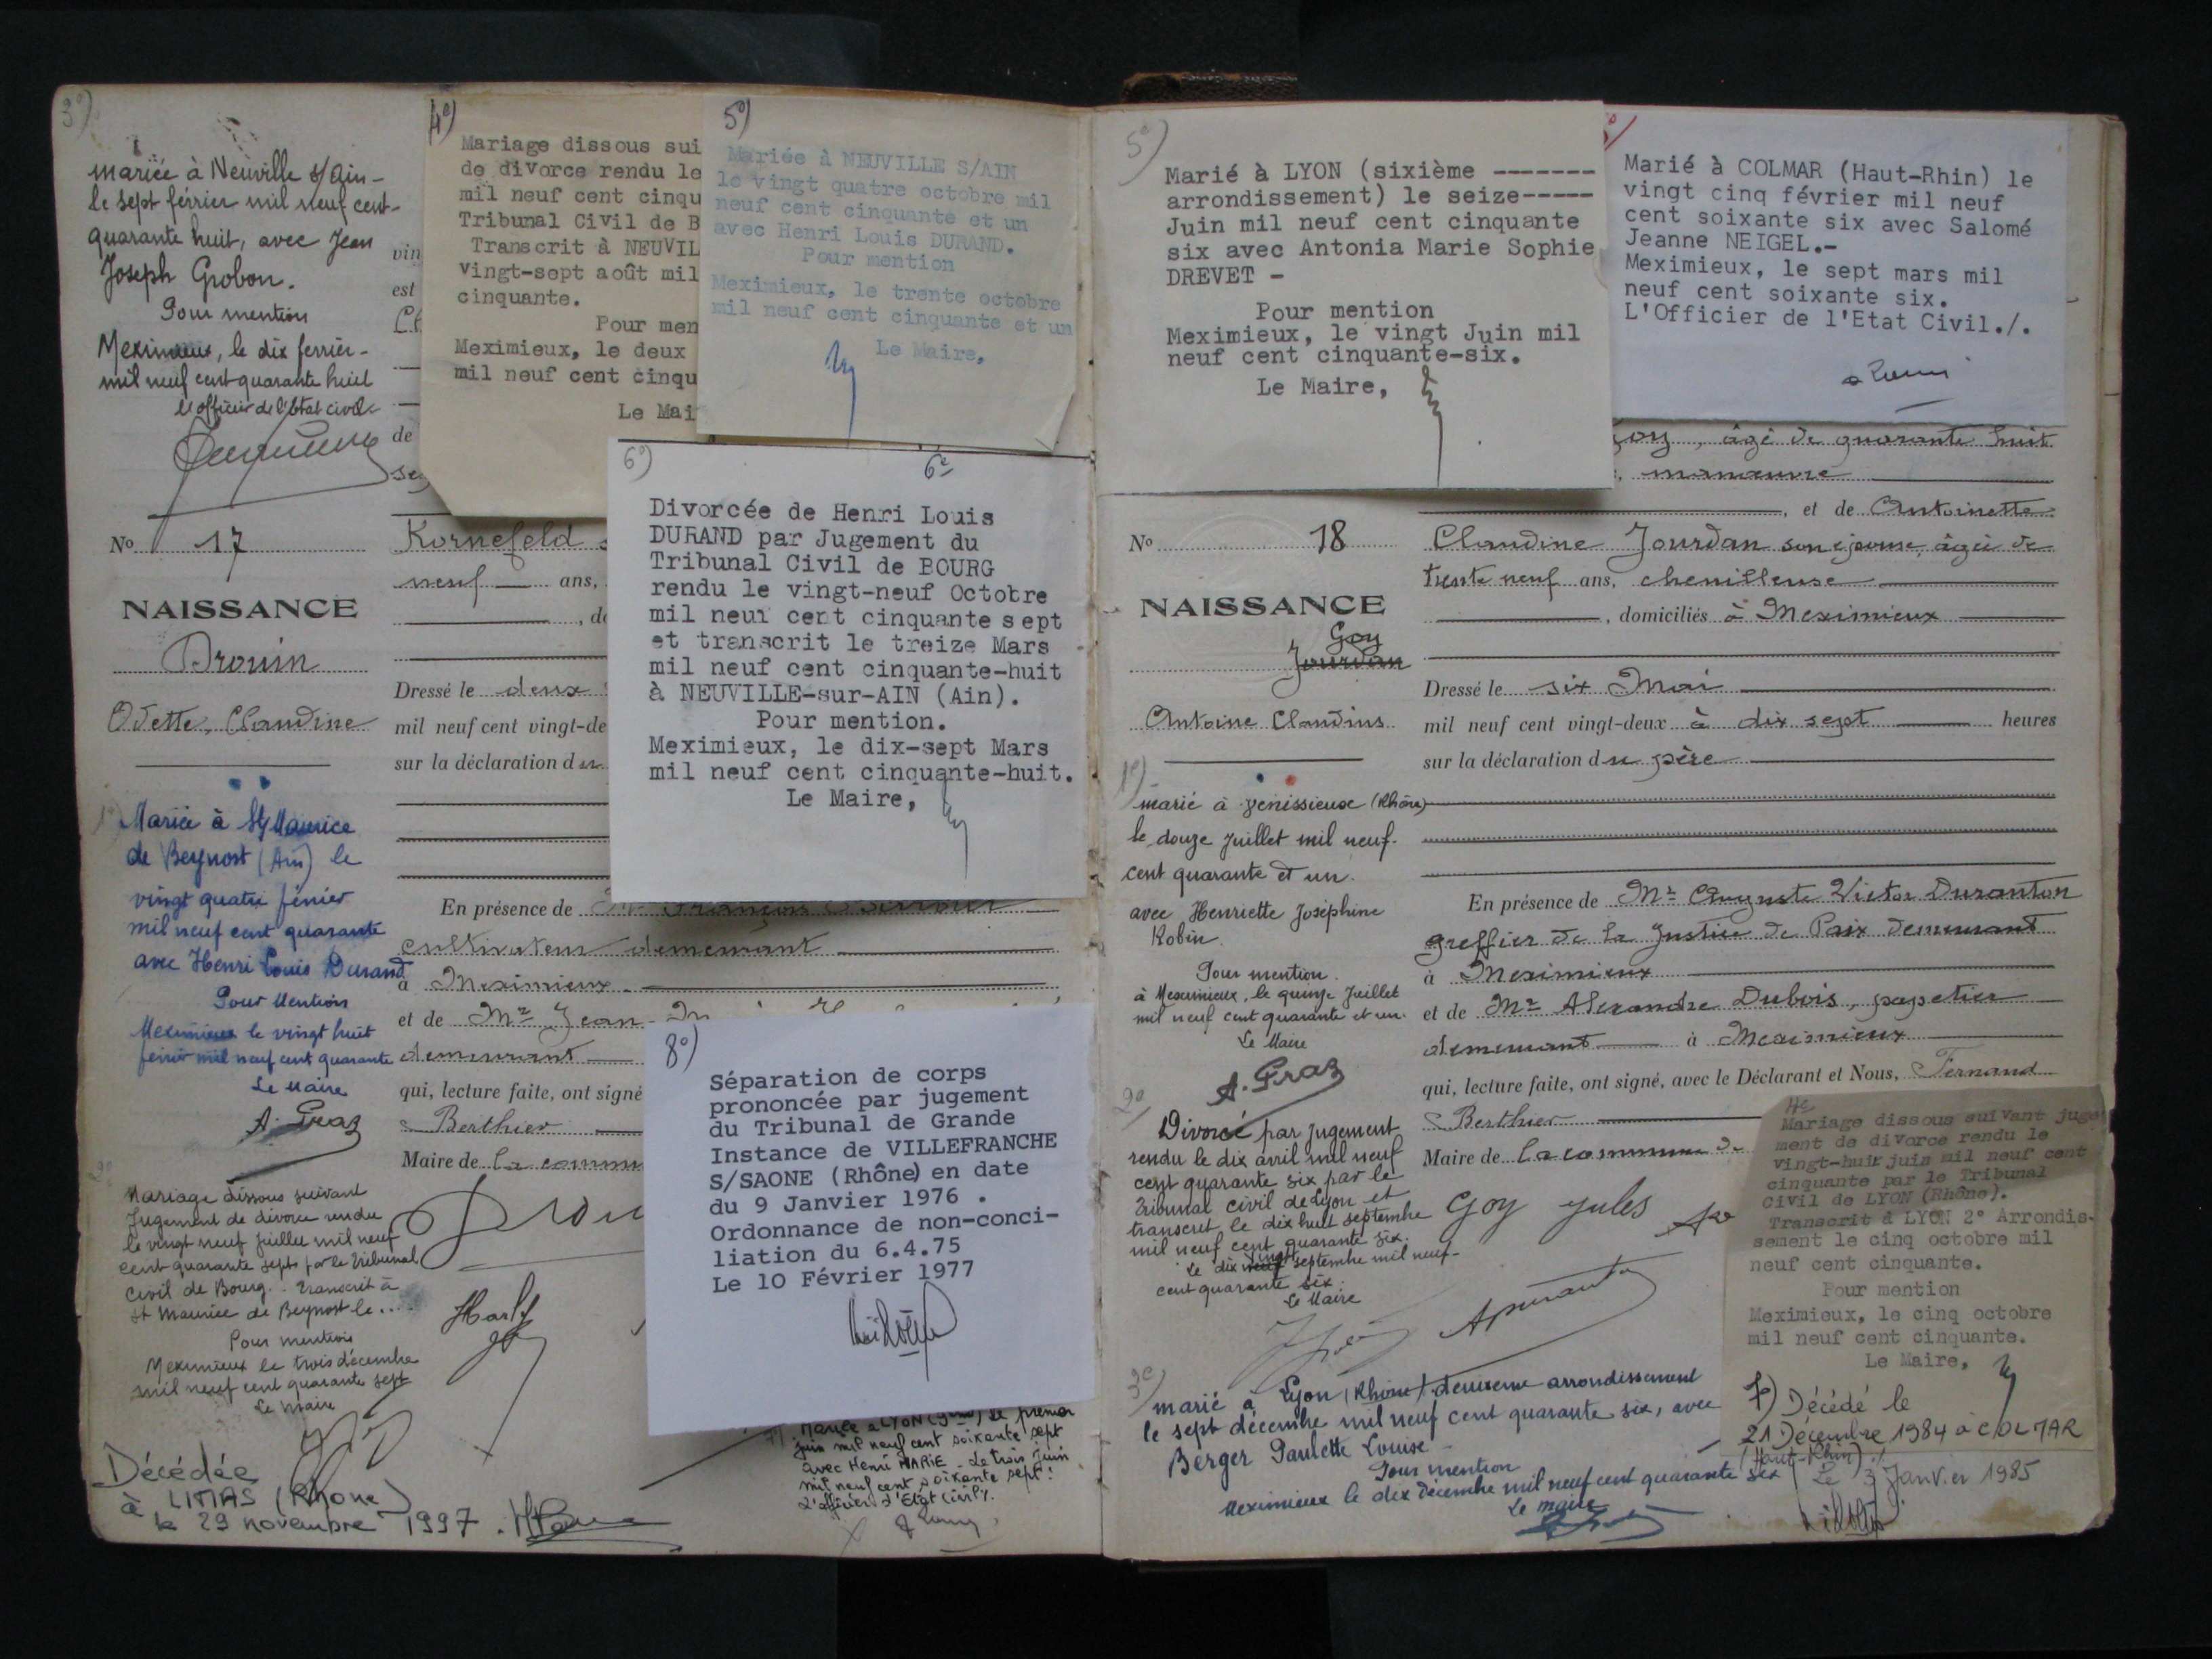 3°)
mariée à Neuville s/Ain-
le sept février mil neuf cent-
quarante huit, avec Jean
Joseph Grobon.
Pour mention
Meximieux, le dix février-
mil neuf cent quarante huit
l'officier de l'Etat civil
No 17
NAISSANCE
Drouin
Odette, Claudine
1°)
Mariée à St Maurice
de Beynost (Ain) le
vingt quatre février
mil neuf cent quarante
avec Henri Louis Durand
Pour Mention
Meximieux le vingt huit
février mil neuf cent quarante
Le Maire
A. Praz
2°
Mariage dissous suivant
Jugement de divorce rendu
le vingt neuf juillet mil neuf
cent quarante sept par le Tribunal
civil de Bourg. Transcrit à
St Maurice de Beynost le ....
Pour mention
Meximieux le trois décembre
mil neuf cent quarante sept
Le Maire
Décédée
à LIMAS (Rhône)
le 29 novembre 1997.
4°)
Mariage dissous sui
de divorce rendu le
mil neuf cent cinqu
Tribunal Civil de B
Transcrit à NEUVIL
vingt-sept août mil
cinquante.
Pour men
Meximieux, le deux
mil neuf cent cinqu
Le Mai
5°)
Mariée à NEUVILLE S/AIN
le vingt quatre octobre mil
neuf cent cinquante et un
avec Henri Louis DURAND.
Pour mention
Meximieux, le trente octobre
mil neuf cent cinquante et un
Le Maire,
6°) 6e
Divorcée de Henri Louis
DURAND par Jugement du
Tribunal Civil de BOURG
rendu le vingt-neuf Octobre
mil neuf cent cinquante sept
et transcrit le treize Mars
mil neuf cent cinquante-huit
à NEUVILLE-sur-AIN (Ain).
Pour mention.
Meximieux, le dix-sept Mars
mil neuf cent cinquante-huit.
Le Maire,
vin
est
de
Kornefeld
neuf ans,
, d
Dressé le deux
mil neuf cent vingt-de
sur la déclaration du
En présence de Mr François
cultivateur demeurant
à Meximieux
et de Mr Jean
demeurant
qui, lecture faite, ont signé
Berthier
Maire de la commun
8°)
Séparation de corps
prononcée par jugement
du Tribunal de Grande
Instance de VILLEFRANCHE
S/SAONE (Rhône) en date
du 9 Janvier 1976 .
Ordonnance de non-conci-
liation du 6.4.75
Le 10 Février 1977
Mariée à LYON le premier
juin mil neuf cent soixante sept
avec Henri MARIE - Le trois Juin
mil neuf cent soixante sept.
L'officier d'Etat Civil/.
5°)
Marié à LYON (sixième -------
arrondissement) le seize-----
Juin mil neuf cent cinquante
six avec Antonia Marie Sophie
DREVET -
Pour mention
Meximieux, le vingt Juin mil
neuf cent cinquante-six.
Le Maire,
Marié à COLMAR (Haut-Rhin) le
vingt cinq février mil neuf
cent soixante six avec Salomé
Jeanne NEIGEL.-
Meximieux, le sept mars mil
neuf cent soixante six.
L'Officier de l'Etat Civil./.
Goy, âgé de quarante huit
, manœuvre
, et de Antoinette
Claudine Jourdan son épouse, âgée de
trente neuf ans, chenilleuse
, domiciliés à Meximieux
Dressé le six Mai
mil neuf cent vingt-deux à dix sept heures
sur la déclaration du père
En présence de Mr Auguste Victor Duranton
greffier de la Justice de Paix demeurant
à Meximieux
et de Mr Alexandre Dubois, papetier
demeurant à Meximieux
qui, lecture faite, ont signé, avec le Déclarant et Nous, Fernand
Berthier
Maire de la commune de
Goy Jules
No 18
NAISSANCE
Goy
Jourdan
Antoine Claudius
1°)
marié à Vénissieux (Rhône)
le douze Juillet mil neuf-
cent quarante et un.
avec Henriette Joséphine
Robin
Pour mention.
à Meximieux, le quinze Juillet
mil neuf cent quarante et un.
Le Maire
A. Praz
2°
Divorcé par jugement
rendu le dix avril mil neuf
cent quarante six par le
Tribunal civil de Lyon et
transcrit le dix huit septembre
mil neuf cent quarante six.
Le vingt septembre mil neuf-
cent quarante six.
Le Maire
3e)
marié à Lyon (Rhône) deuxieme arrondissement
le sept décembre mil neuf cent quarante six, avec
Berger Paulette Louise -
Pour mention
Meximieux le dix Décembre mil neuf cent quarante six
Le maire
4e
Mariage dissous suivant juge-
ment de divorce rendu le
vingt-huit juin mil neuf cent
cinquante par le Tribunal
Civil de LYON (Rhône).
Transcrit à LYON 2° Arrondis-
sement le cinq octobre mil
neuf cent cinquante.
Pour mention
Meximieux, le cinq octobre
mil neuf cent cinquante.
Le Maire,
7°) Décédé le
21 Décembre 1984 à COLMAR
(Haut-Rhin)./.
Le 3 Janvier 1985